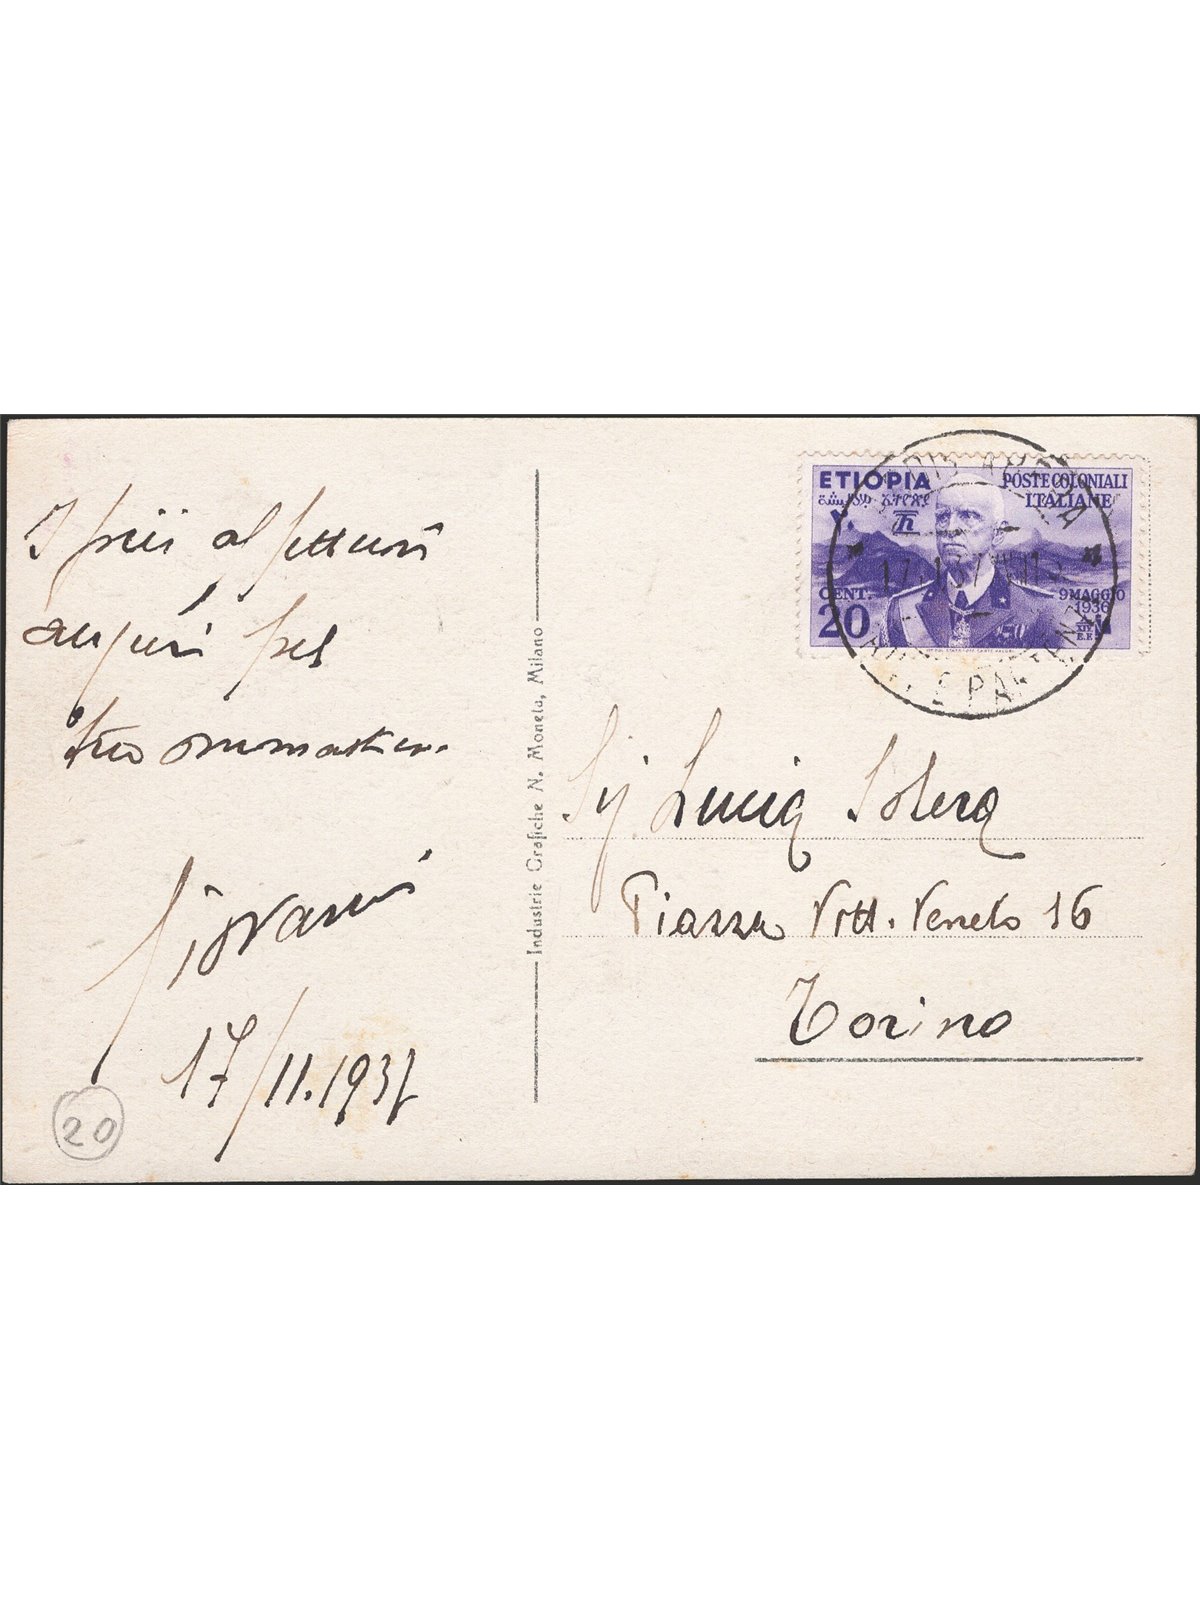 I più affettuosi
auguri pel
tuo onomastico.
Giovanni
17/11.1937
20
Industrie Grafiche N. Moneta, Milano
ETIOPIA
POSTE COLONIALI
ITALIANE
CENT.
20
9 MAGGIO
1936
XIV
E.F.
ADDIS ABEBA
Sig Lucia Solera
Piazza Vitt. Veneto 16
Torino